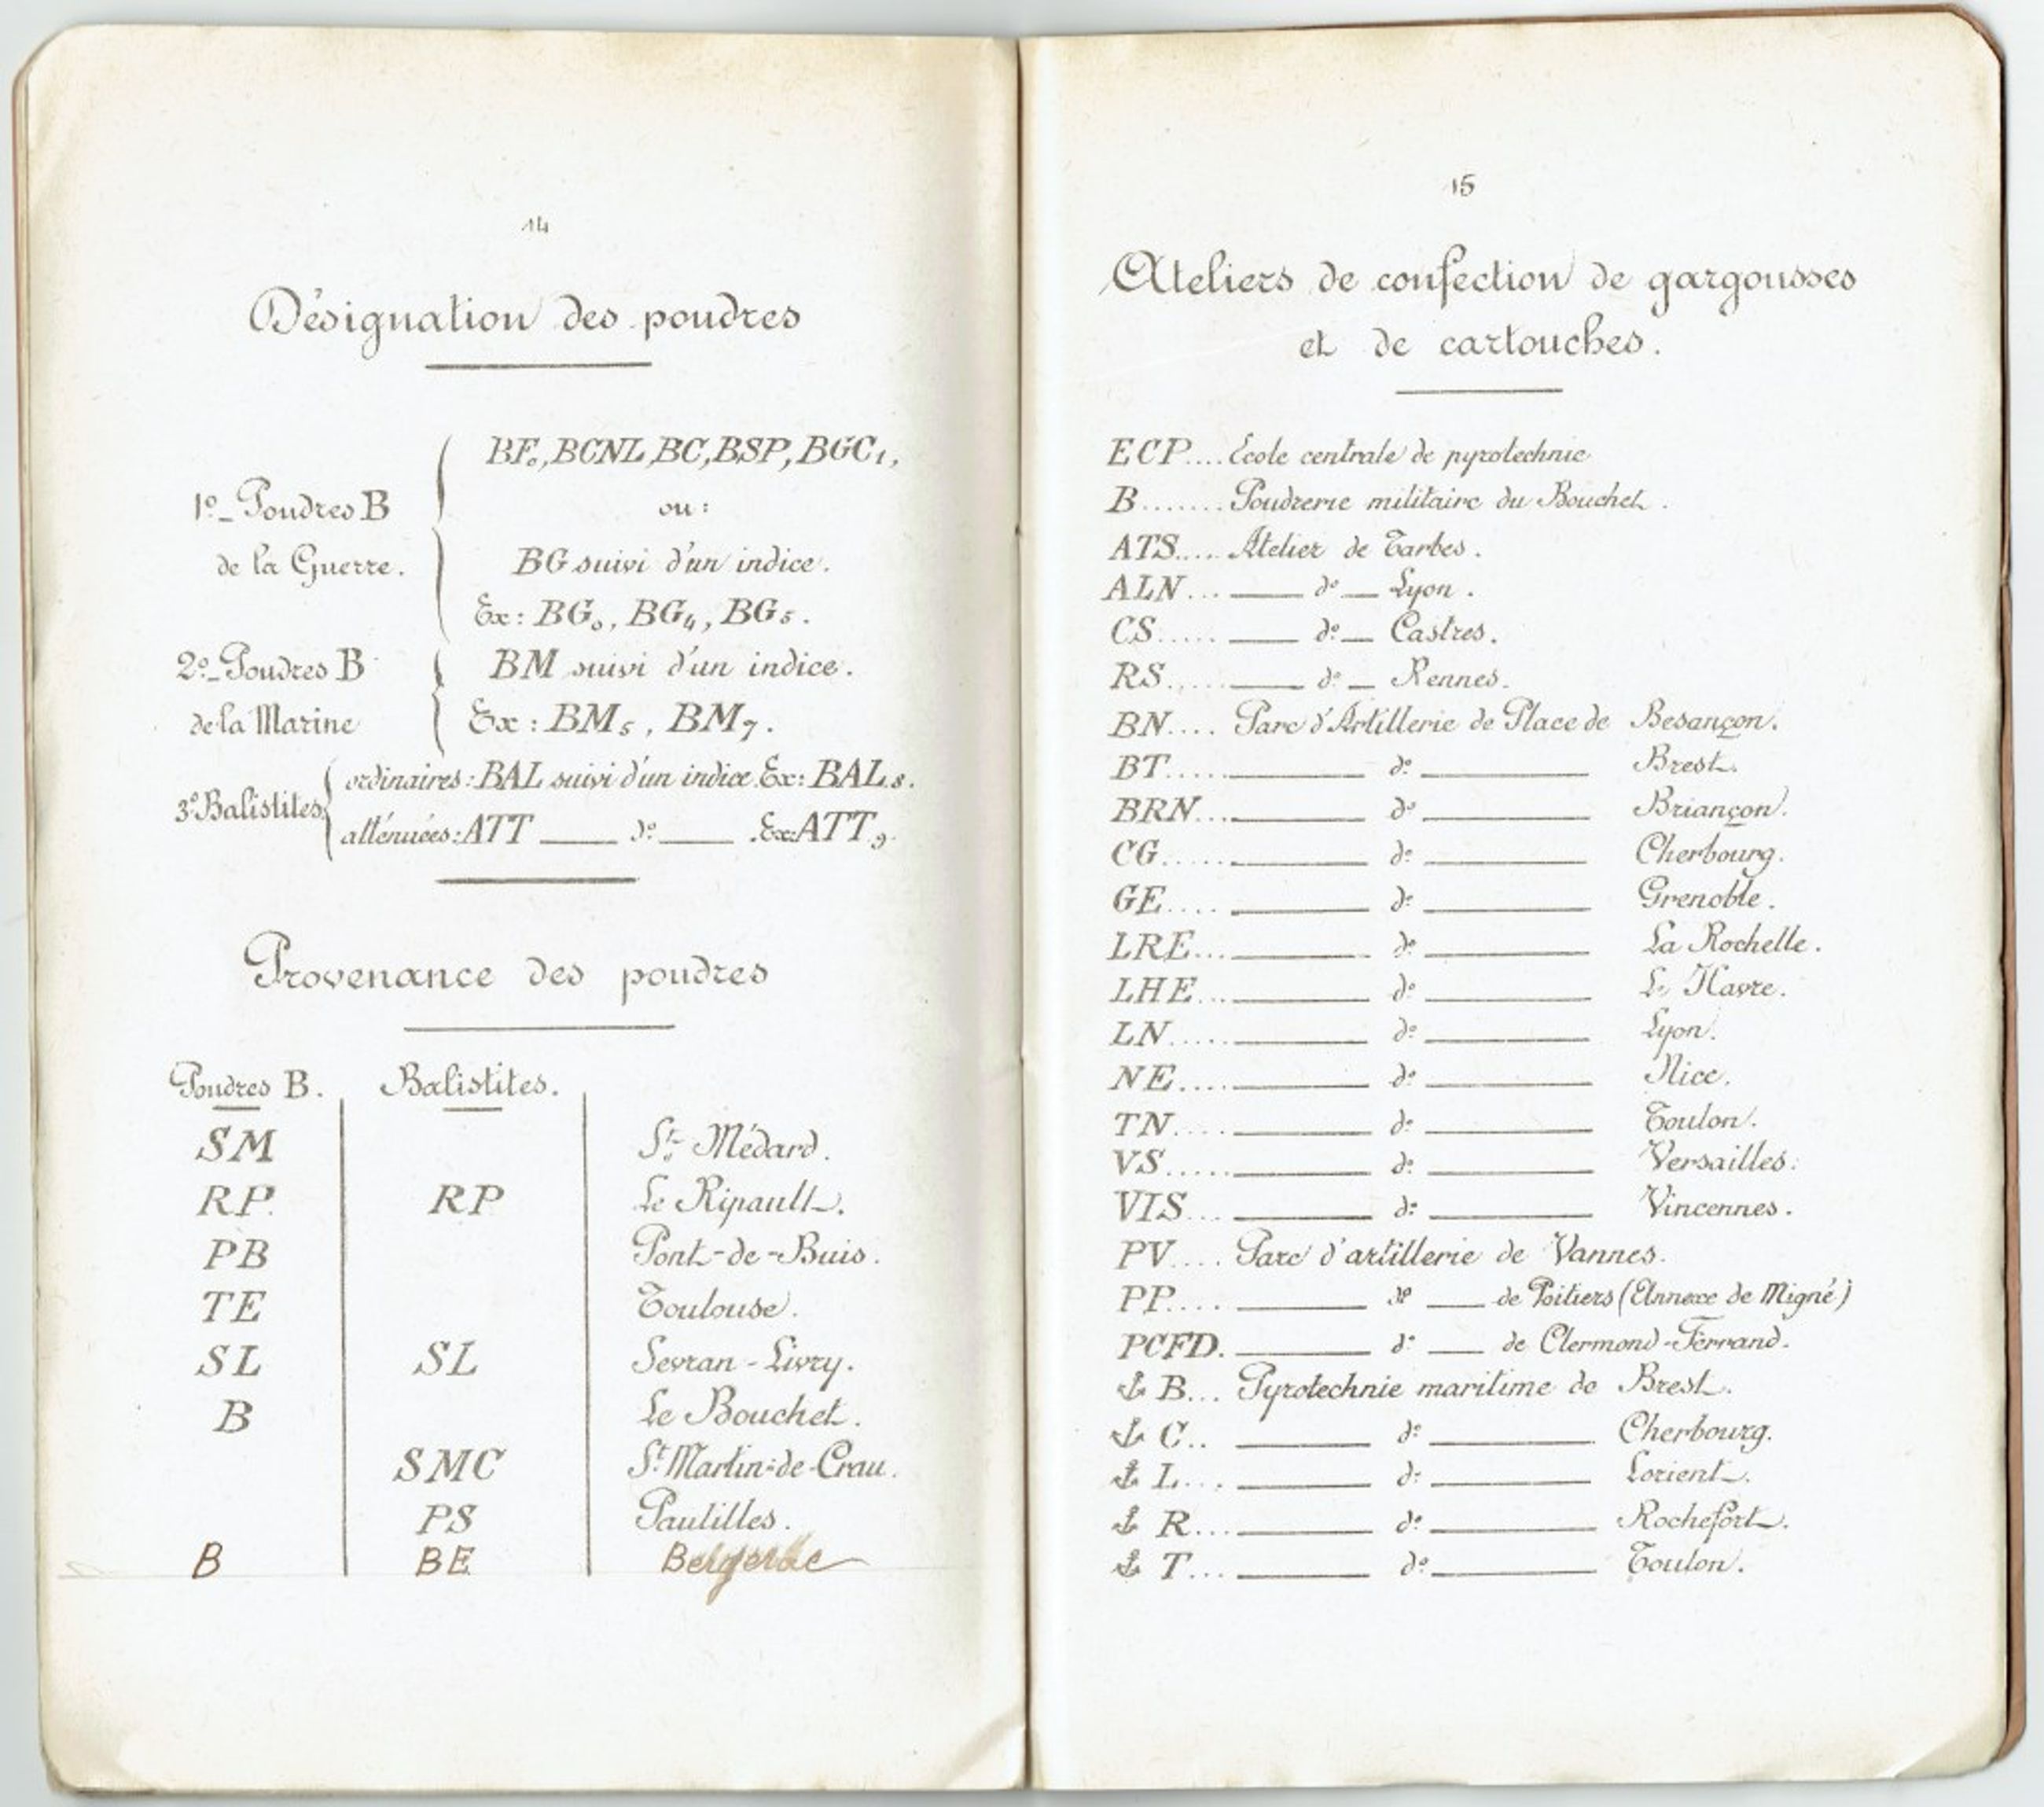 14
Désignation des poudres
1º_ Poudres B
de la Guerre.
BF₀, BCNL, BC, BSP, BGC₁,
ou :
BG suivi d'un indice.
Ex : BG₀, BG₄, BG₅.
2º_ Poudres B
de la Marine
BM suivi d'un indice.
Ex : BM₅, BM₇.
3º Balistites
ordinaires : BAL suivi d'un indice. Ex : BAL₈.
atténuées : ATT ____ dº ____ . Ex : ATT₉.
Provenance des poudres
Poudres B. Balistites.
SM St. Médard.
RP RP Le Ripault.
PB Pont-de-Buis.
TE Toulouse.
SL SL Sevran-Livry.
B Le Bouchet.
SMC St Martin-de-Crau.
PS Paulilles.
B BE Bergerac
15
Ateliers de confection de gargousses
et de cartouches.
ECP.... Ecole centrale de pyrotechnie
B........ Poudrerie militaire du Bouchet.
ATS..... Atelier de Tarbes.
ALN... ____ dº __ Lyon.
CS..... ____ dº __ Castres.
RS...... ____ dº __ Rennes.
BN.... Parc d'Artillerie de Place de Besançon.
BT..... ____ dº ____ Brest.
BRN... ____ dº ____ Briançon.
CG...... ____ dº ____ Cherbourg.
GE.... ____ dº ____ Grenoble.
LRE... ____ dº ____ La Rochelle.
LHE... ____ dº ____ Le Havre.
LN..... ____ dº ____ Lyon.
NE.... ____ dº ____ Nice.
TN.... ____ dº ____ Toulon.
VS..... ____ dº ____ Versailles.
VIS... ____ dº ____ Vincennes.
PV.... Parc d'artillerie de Vannes.
PP.... ____ dº ____ de Poitiers (Annexe de Migné)
PCFD. ____ dº ____ de Clermond-Ferrand.
⚓ B... Pyrotechnie maritime de Brest.
⚓ C.. ____ dº ____ Cherbourg.
⚓ L... ____ dº ____ Lorient.
⚓ R... ____ dº ____ Rochefort.
⚓ T... ____ dº ____ Toulon.